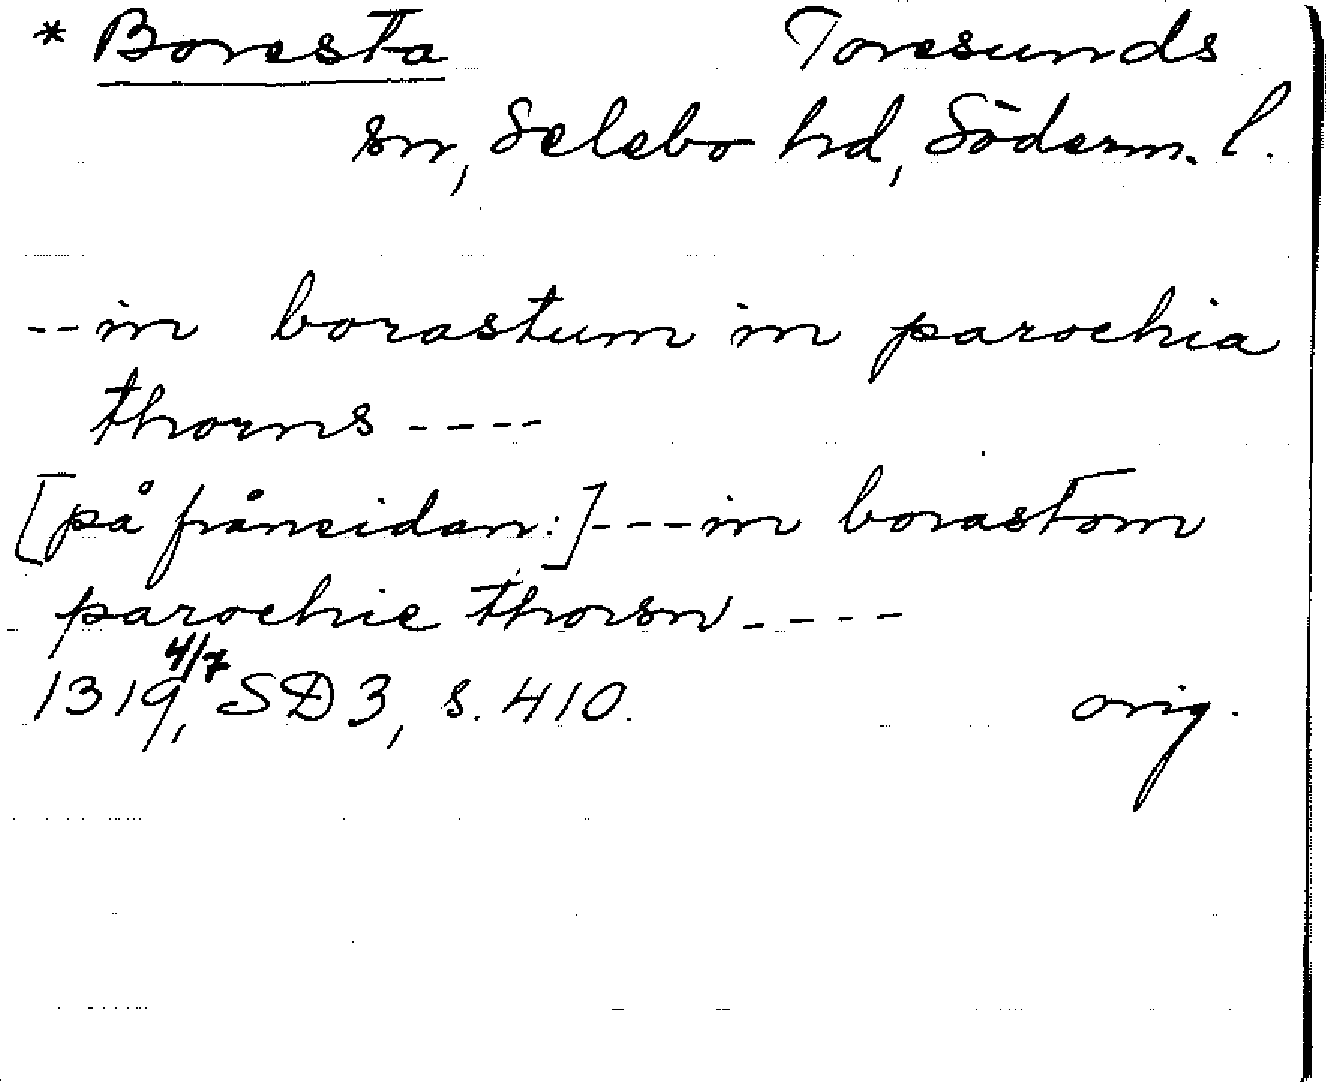 * Boresta Toresunds
sn, Selebo hd, Söderm. l.
--in borastum in parochia
thorns ----
[på frånsidan:]---in borastom
parochie thorsn ----
1319, 4/7 SD 3, s. 410. orig.